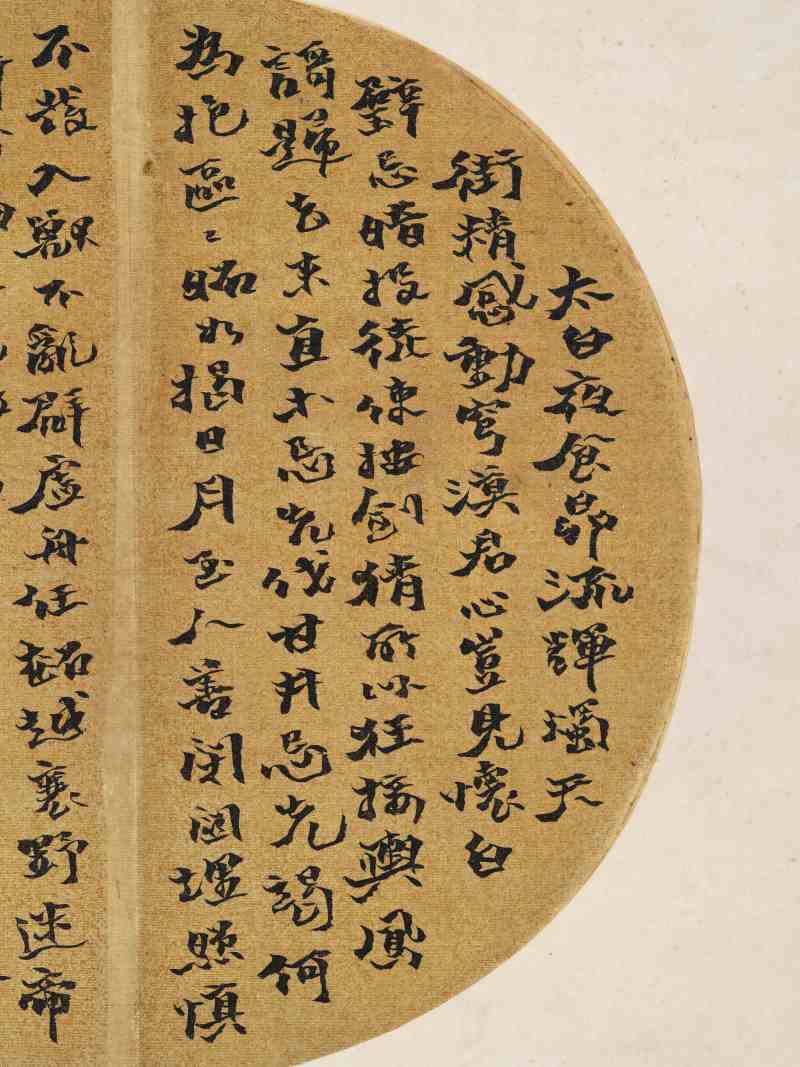 太白夜食昴流輝燭天
街精感動穹漠君心豈見懷白
璧忌暗投徒使按劍猜所以狂接輿鳳
謌歸去來直木忌先伐甘井忌先竭何
為抱區〻昭如揭日月至人善閉關埋照慎
不發入獸不亂群虛舟任超越襄野迷帝